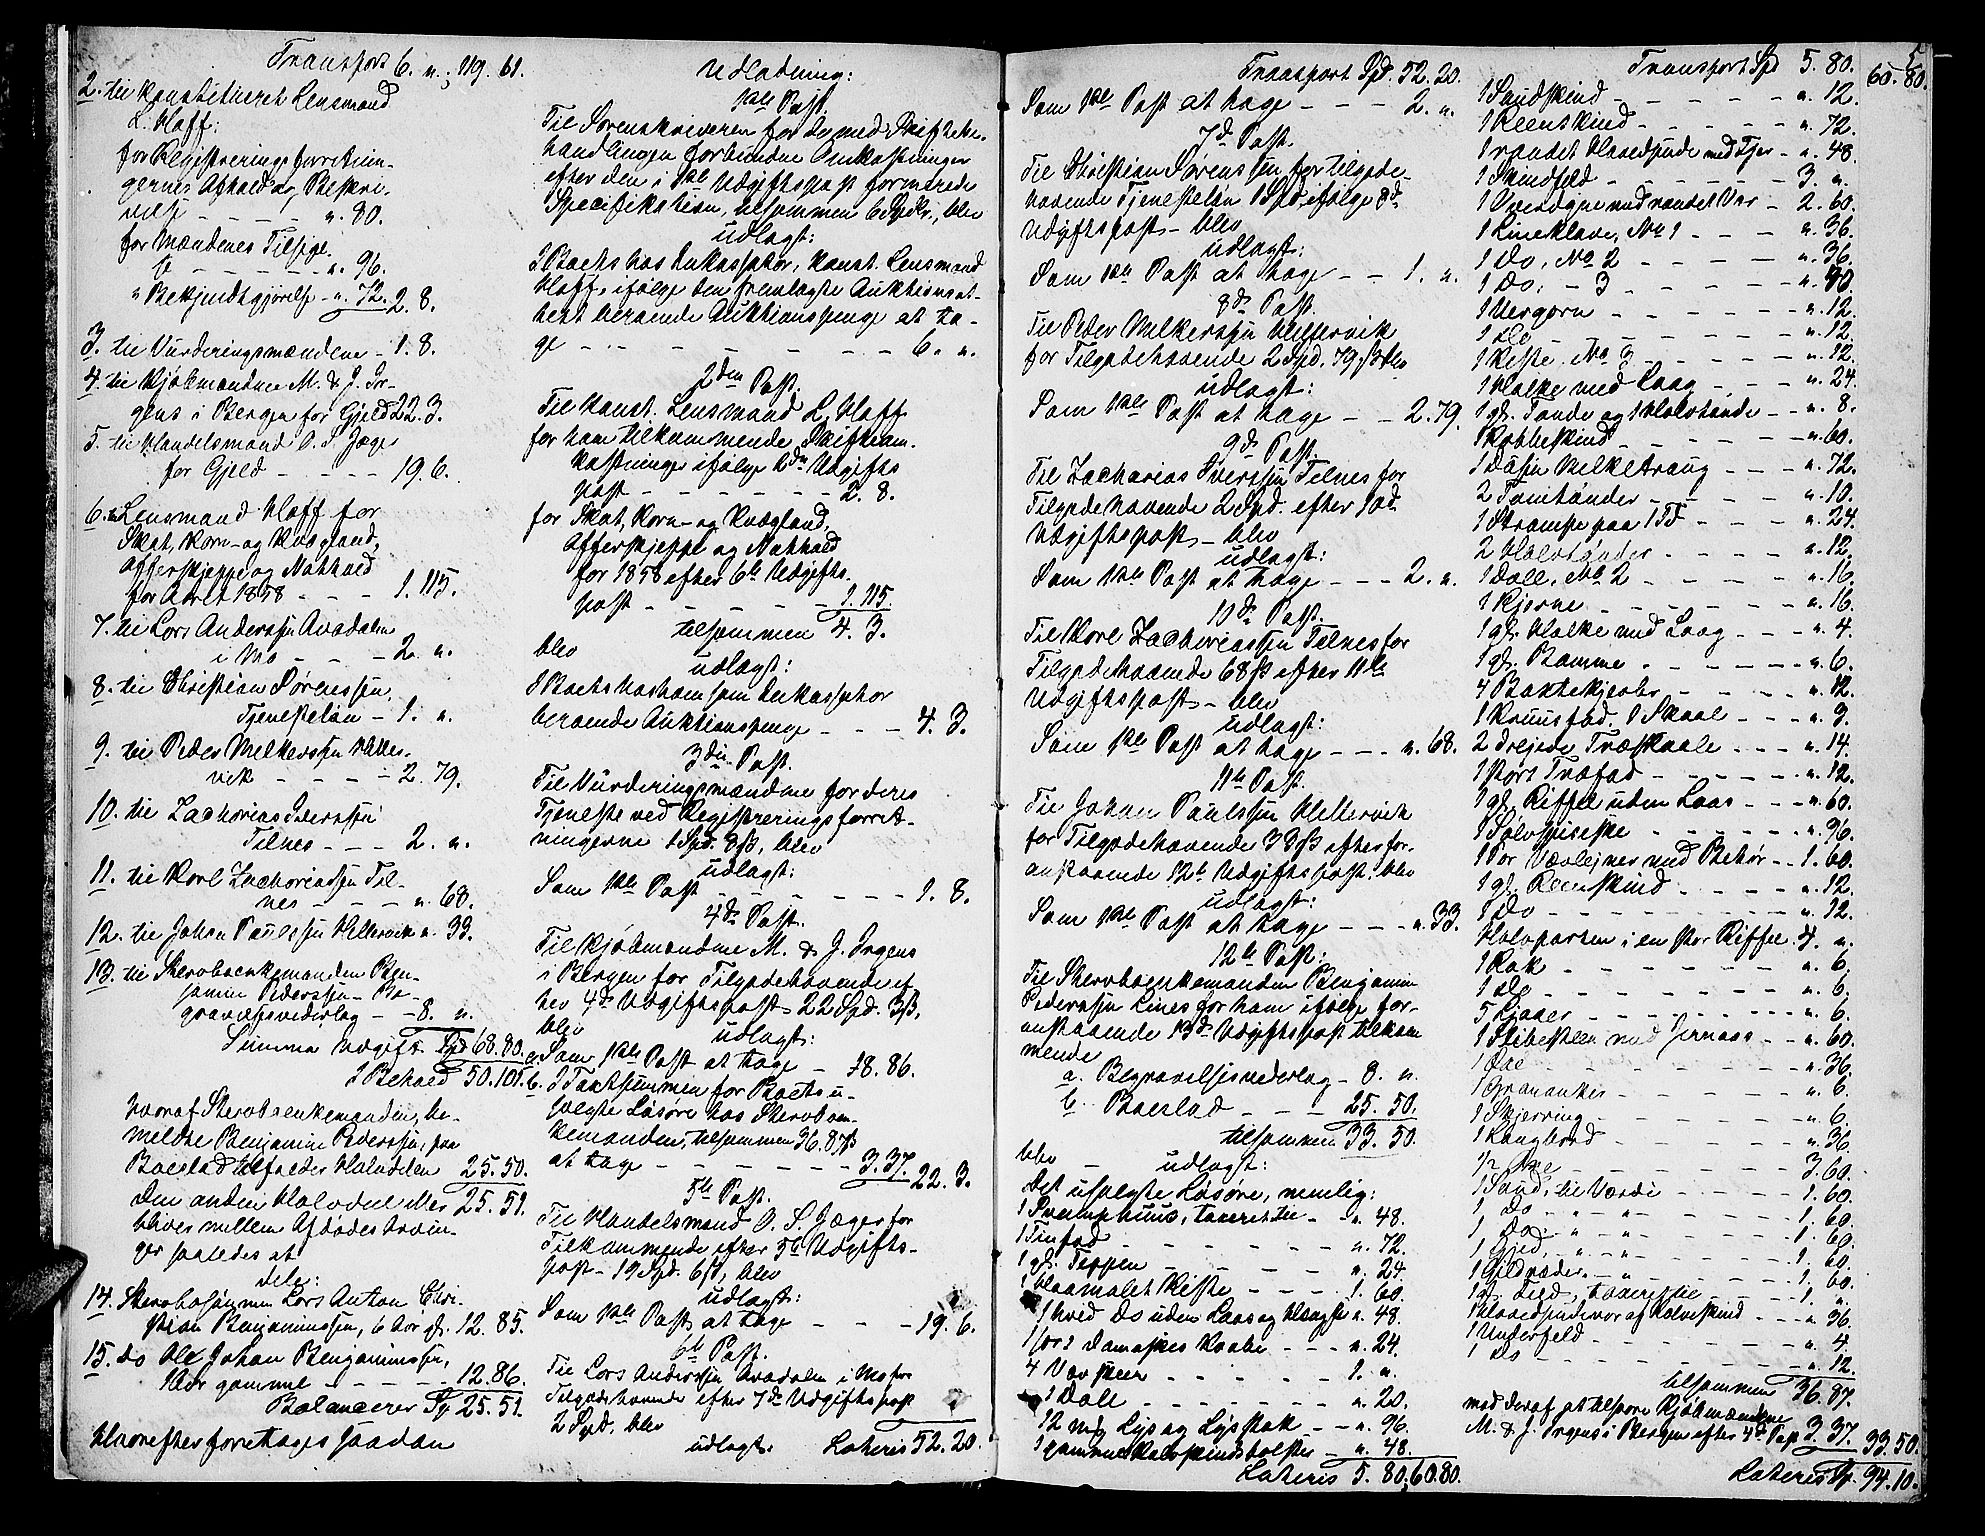 Transport 6. "; 119. 61.
2. til konstitueret Lensmand
L. Hoff:
for Registreringsforretnin-
gernes Afhold og Beskri-
velse - - - - - ". 80.
for Mændenes Tilsige.
se - - - - - - ". 96.
" Bekjendtgjørelse - ". 72. 2. 8.
3. til Vurderingsmændene - 1. 8.
4. til Kjøbmændene M. & J. Ir-
gens i Bergen for Gjeld 22. 3.
5. til Handelsmand O. S. Jæger
for Gjeld - - - - 19. 6.
6. Lensmand Hoff for
Skat, Korn- og Kvægland,
Offerskjeppe og Nathold
for Aaret 1858 - - - 1. 115.
7. til Lars Anderssen Avadalen
i Mo - - - - 2. ".
8. til Christian Sørenssen,
Tjenesteløn - 1. ".
9. til Peder Melkerssen Heller-
vik - - - - - 2. 79.
10. til Zacharias Iverssen
Tilnes - - - 2. ".
11. til Karl Zachariassen Til-
nes - - - - ". 68.
12. til Johan Paulssen Hellervik ". 33.
13. til Stervboenkemanden Ben-
jamin Pederssen - Be-
gravelsesvederlag - - 8. ".
Summa Udgift Spd 68. 80.
I Behold 50. 101.
hvoraf Stervboenkemanden, be-
meldte Benjamin Pederssen, paa
Boeslod tilfalder Halvdelen 25. 50.
Den anden Halvdel eller 25. 51.
bliver mellem Afdødes Arvin-
ger saaledes at
dele:
14. Stervbosønnen Lars Anton Chri-
stian Benjaminssen, 6 Aar gl. 12. 85.
15. Do Ole Johan Benjaminssen,
1 Aar gammel - - - - - 12. 86.
Balancerer Sp 25. 51.
Hvorefter foretages saadan
Udlodning:
1ste Post.
Til Sorenskriveren for de med Skiftebe-
handlingen forbundne Omkostninger
efter den i 1ste Udgiftspost formerede
Specifikation, tilsammen 6 Spdlr., blev
udlagt:
I Boets hos Inkassator, Konst. Lensmand
Hoff, ifølge den fremlagte Auktionsat-
test beroende Auktionspenge at ta-
ge - - - - - - - - - 6. ".
2den Post.
Til Konst. Lensmand L. Hoff
for ham tilkommende Skifteom-
kostninger ifølge 2den Udgifts
post - - - - - - - 2. 8.
for Skat, Korn- og Kvægland,
Offerskjeppe og Nathold
for 1858 efter 6te Udgifts-
post - - - - - - 1. 115.
tilsammen 4. 3.
blev udlagt:
I Boets hos ham som Inkassator
beroende Auktionspenge - - - 4. 3.
3die Post.
Til Vurderingsmændene for deres
Tjeneste ved Registreringsforret-
ningerne 1 Spd. 8 ß, blev
udlagt:
Som 1ste Post - - - - - - - 1. 8.
4de Post.
Til Kjøbmændene M. & J. Irgens
i Bergen for Tilgodehavende ef-
ter 4de Udgiftspost 22 Spd. 3 ß,
blev udlagt:
a. Som 1ste Post at tage - 18. 86.
b. I Taxtsummen for Boets u-
solgte Løsøre hos Stervboen-
kemanden, tilsammen 36. 87 ß
at tage - - - - - - - 3. 37. 22. 3.
5te Post.
Til Handelsmand O. S. Jæger for
Tilkommende efter 5te Udgifts-
post - 19 Spd. 6 ß, blev
udlagt:
Som 1ste Post at tage - - - 19. 6.
6te Post.
Til Lars Anderssen Avadalen i Mo for
Tilgodehavende efter 7de Udgiftspost
2 Spd., blev
udlagt: Lateris 52. 20.
Transport Spd. 52. 20.
Som 1ste Post at tage - - - - 2. ".
7de Post.
Til Christian Sørenssen for tilgode-
havende Tjenesteløn 1 Spd. ifølge 8de
Udgiftspost - blev
udlagt:
Som 1ste Post at tage - - 1. ".
8de Post.
Til Peder Melkerssen Hellervik
for Tilgodehavende 2 Spd. 79 ß blev
udlagt:
Som 1ste Post at tage - - 2. 79.
9de Post.
Til Zacharias Iverssen Tilnes for
Tilgodehavende 2 Spd. efter 10de
Udgiftspost - blev
udlagt:
Som 1ste Post at tage - - - 2. ".
10de Post.
Til Karl Zachariassen Tilnes for
Tilgodehavende 68 ß efter 11te
Udgiftspost - blev
udlagt:
Som 1ste Post at tage - - - ". 68.
11te Post.
Til Johan Paulssen Hellervik
for Tilgodehavende 33 ß efter for-
anstaaende 12te Udgiftspost blev
udlagt:
Som 1ste Post at tage - - - ". 33.
12te Post:
Til Stervboenkemanden Benjamin
Pederssen Lines for ham ifølge for-
anstaaende 13de Udgiftspost tilkom
mende
a. Begravelsesvederlag - 8. ".
b. Boeslod - - - 25. 50.
tilsammen 33. 50.
blev - udlagt:
Det usolgte Løsøre, nemlig:
1 Svamphuus, taxeret til - ". 48.
1 Tinfad - - - - - - - ". 72.
1 gl. Teppen - - - - - - ". 24.
1 blaamalet Kiste - - - - 1. 60.
1 hvid Do uden Laas og Hængsle ". 48.
1 sort Damaskes Kaabe - - - ". 24.
4 Vævskeer - - - - - - 1. ".
1 Dall - - - - - - - - ". 20.
12 mrk Lys og Lysstok - - ". 96.
1 gammel Kalvskindsholster - ". 48.
Lateris 5. 80; 60. 80.
5
Transport Spd 5. 80. 60. 80.
1 Saudskind - - - - - - ". 12.
1 Reenskind - - - - - - ". 72.
1 randet Hovedpude med Fjer - ". 48.
1 Skindfeld - - - - - - 3. ".
1 Overdyne med randet Vor - 2. 60.
1 Lineklave, No 1 - - - - ". 36.
1 Do, No 2 - - - - - - ". 36.
1 Do, - 3 - - - - - - ". 40.
1 Vergarn - - - - - - ". 12.
1 Do - - - - - - - ". 12.
1 Kiste No 3 - - - - - ". 12.
1 Holke med Laag - - - - ". 24.
1 gl. Tønde og 1 Halvtønde - - ". 8.
1 Kobbeskind - - - - - - ". 60.
1 Dusin Melketraug - - - ". 72.
2 Tomtønder - - - - - ". 10.
1 Strompe paa 1 Td - - - ". 24.
2 Halvtønder - - - - - ". 12.
1 Dall, No 2 - - - - - ". 16.
1 Kjerne - - - - - - - ". 16.
1 gl. Holke med Laag - - - ". 4.
1 gl. Bomme - - - - - - ". 6.
4 Bøttekjerler - - - - - ". 12.
1 Kruusfad, 1 Skaal - - - ". 9.
2 drejede Træskaale - - - ". 14.
1 stort Træfad - - - - - ". 12.
1 gl. Riffel uden Laas - - - ". 60.
1 Sølvspiseske - - - - - - ". 96.
1 Par Tævlejner med Behør - - 1. 60.
1 gl. Reenskind - - - - - ". 12.
1 Do - - - - - - - - - ". 12.
Halvparten i en stor Riffel. 4. ".
1 Rok - - - - - - - - ". 6.
1 Do - - - - - - - - ". 6.
5 Ljaaer - - - - - - - ". 6.
1 Slibesteen med Jernaas - - ". 60.
1 Øxe - - - - - - - - ". 36.
1 Gramanker - - - - - - ". 6.
1 Skjerring - - - - - - ". 6.
1 Langbord - - - - - - - ". 36.
1/2 Oxe - - - - - - - 3. 60.
1 Saud, til Værdi - - - - - 1. 60.
1 Do - " - " - - - - - 1. 60.
1 Do - " - " - - - - - 1. 60.
1 Gjed, - " - " - - - - - 1. 60.
1 Gildveder, - " - - - - - 1. 60.
1 gl. Feld, taxeret til - - - 1. ".
1 Hovedpudevor af Kalveskind - - ". 36.
1 Underfeld - - - - - - - ". 4.
1 Do - - - - - - - - - ". 12.
tilsammen 36. 87.
med deraf at tilsvare Kjøbmændene
M. & J. Irgens i Bergen efter 4de Post 3. 37. 33. 50.
Lateris Sp. 94. 10.